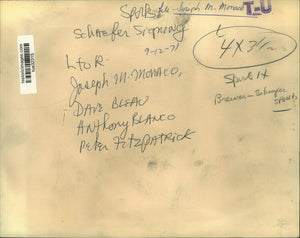 SPORTS Joseph M. Monaco T-U
Schaefer Signing
9-12-71
L to R.
Joseph M. MONACO,
DAVE BLEAU
Anthony BLANCO
Peter FitzPATRICK
4 X 3 1/2
Sports
Brewer-Schaefer
SPORTS